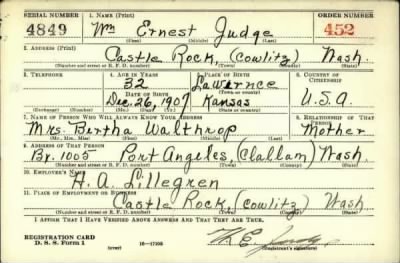 SERIAL NUMBER 1. NAME (Print) ORDER NUMBER
4849 Wm Ernest Judge 452
(First) (Middle) (Last)
2. ADDRESS (Print)
Castle Rock, (Cowlitz) Wash.
(Number and street or R. F. D. number) (Town) (County) (State)
3. TELEPHONE 4. AGE IN YEARS 5. PLACE OF BIRTH 6. COUNTRY OF CITIZENSHIP
32 LaWernce
DATE OF BIRTH (Town or county)
Dec. 26, 1907 Kansas U.S.A.
(Exchange) (Number) (Mo.) (Day) (Yr.) (State or country)
7. NAME OF PERSON WHO WILL ALWAYS KNOW YOUR ADDRESS 8. RELATIONSHIP OF THAT PERSON
Mrs. Bertha Walthrop Mother
(Mr., Mrs., Miss) (First) (Middle) (Last)
9. ADDRESS OF THAT PERSON
Bx. 1005 Port Angeles, (Clallam) Wash.
(Number and street or R. F. D. number) (Town) (County) (State)
10. EMPLOYER'S NAME
H. A. Lillegren
11. PLACE OF EMPLOYMENT OR BUSINESS
Castle Rock, (Cowlitz) Wash.
(Number and street or R. F. D. number) (Town) (County) (State)
I AFFIRM THAT I HAVE VERIFIED ABOVE ANSWERS AND THAT THEY ARE TRUE.
REGISTRATION CARD
D. S. S. Form 1 (over) 16—17105 (Registrant's signature)